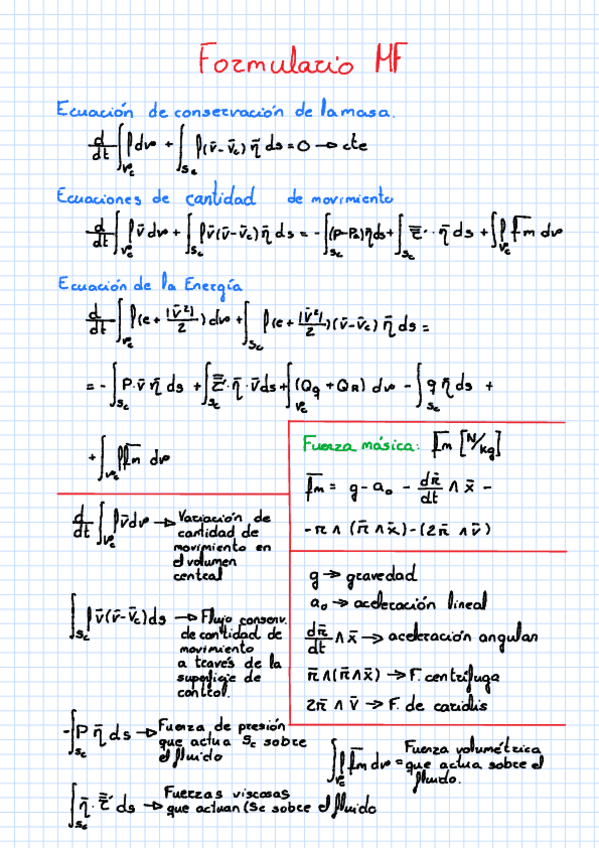 Formulario MF
Ecuación de conservación de la masa.
d/dt ∫_Vc ρ dv + ∫_Sc ρ(v̄-v̄c) η̄ ds = 0 → cte
Ecuaciones de cantidad de movimiento
d/dt ∫_Vc ρv̄ dv + ∫_Sc ρv̄(v̄-v̄c) η̄ ds = - ∫_Sc (P-P₀)η̄ ds + ∫_Sc τ̿' · η̄ ds + ∫_Vc ρ f̄m dv
Ecuación de la Energía
d/dt ∫_Vc ρ(e + |v̄²|/2) dv + ∫_Sc ρ(e + |v̄²|/2)(v̄-v̄c) η̄ ds =
= - ∫_Sc P·v̄ η̄ ds + ∫_Sc τ̿' · η̄ · v̄ ds + ∫_Vc (Qq + QR) dv - ∫_Sc q η̄ ds +
+ ∫_Vc ρ f̄m dv
Fuerza másica: f̄m [N/kg]
f̄m = g - a₀ - dπ̄/dt ∧ x̄ -
- π ∧ (π̄ ∧ x̄) - (2π̄ ∧ v̄)
g → gravedad
a₀ → aceleración lineal
dπ̄/dt ∧ x̄ → aceleración angular
π̄ ∧ (π̄ ∧ x̄) → F. centrífuga
2π̄ ∧ v̄ → F. de coriolis
d/dt ∫_Vc ρv̄ dv → Variación de
cantidad de
movimiento en
el volumen
central
∫_Sc ρv̄(v̄-v̄c) ds → Flujo conserv.
de cantidad de
movimiento
a través de la
superficie de
control.
- ∫_Sc P η̄ ds → Fuerza de presión
que actua Sc sobre
el fluido
∫_Vc ρ f̄m dv = Fuerza volumétrica
que actua sobre el
fluido.
∫_Sc η̄ · τ̿' ds → Fuerzas viscosas
que actuan (Sc sobre el fluido